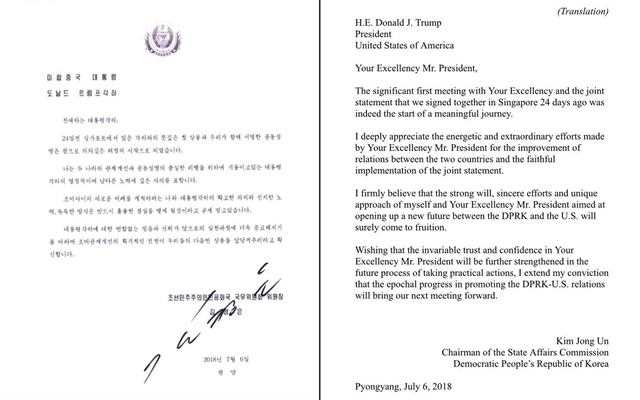 미합중국 대통령
도날드 트럼프각하
친애하는 대통령각하,
24일전 싱가포르에서 있은 각하와의 뜻깊은 첫 상봉과 우리가 함께 서명한 공동성
명은 참으로 의의깊은 려정의 시작으로 되였습니다.
나는 두 나라의 관계개선과 공동성명의 충실한 리행을 위하여 기울이고있는 대통령
각하의 열정적이며 남다른 노력에 깊은 사의를 표합니다.
조미사이의 새로운 미래를 개척하려는 나와 대통령각하의 확고한 의지와 진지한 노
력, 독특한 방식은 반드시 훌륭한 결실을 맺게 될것이라고 굳게 믿고있습니다.
대통령각하에 대한 변함없는 믿음과 신뢰가 앞으로의 실천과정에 더욱 공고해지기
를 바라며 조미관계개선의 획기적인 진전이 우리들의 다음번 상봉을 앞당겨주리라고 확
신합니다.
조선민주주의인민공화국 국무위원회 위원장
김 정 은
2018년 7월 6일
평 양
(Translation)
H.E. Donald J. Trump
President
United States of America
Your Excellency Mr. President,
The significant first meeting with Your Excellency and the joint
statement that we signed together in Singapore 24 days ago was
indeed the start of a meaningful journey.
I deeply appreciate the energetic and extraordinary efforts made
by Your Excellency Mr. President for the improvement of
relations between the two countries and the faithful
implementation of the joint statement.
I firmly believe that the strong will, sincere efforts and unique
approach of myself and Your Excellency Mr. President aimed at
opening up a new future between the DPRK and the U.S. will
surely come to fruition.
Wishing that the invariable trust and confidence in Your
Excellency Mr. President will be further strengthened in the
future process of taking practical actions, I extend my conviction
that the epochal progress in promoting the DPRK-U.S. relations
will bring our next meeting forward.
Kim Jong Un
Chairman of the State Affairs Commission
Democratic People's Republic of Korea
Pyongyang, July 6, 2018